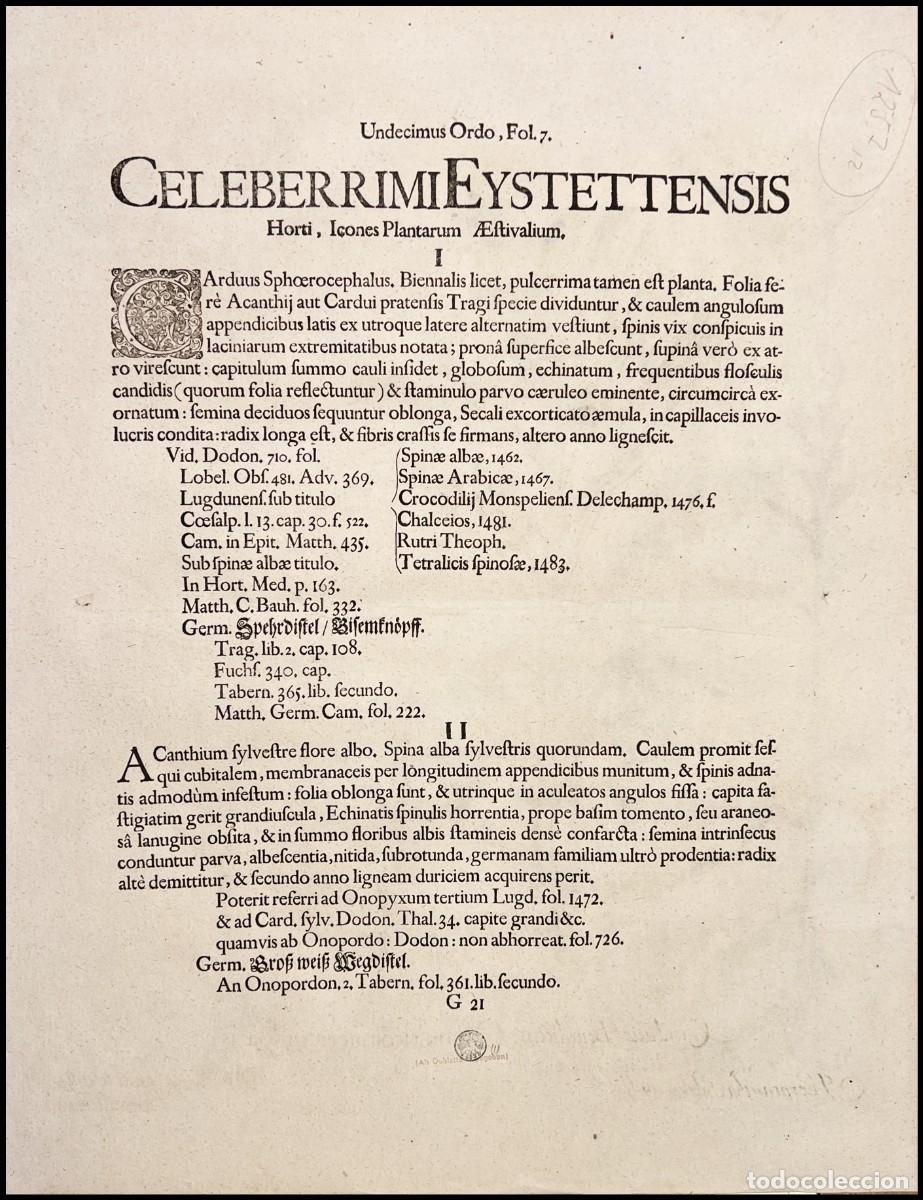 Undecimus Ordo, Fol. 7.
CELEBERRIMI EYSTETTENSIS
Horti, Icones Plantarum Æſtivalium.
I
CArduus Sphœrocephalus. Biennalis licet, pulcerrima tamen eſt planta. Folia fe-
rè Acanthij aut Cardui pratenſis Tragi ſpecie dividuntur, & caulem anguloſum
appendicibus latis ex utroque latere alternatim veſtiunt, ſpinis vix conſpicuis in
laciniarum extremitatibus notata; pronâ ſuperfice albeſcunt, ſupinâ verò ex at-
ro vireſcunt: capitulum ſummo cauli inſidet, globoſum, echinatum, frequentibus floſculis
candidis (quorum folia reflectuntur) & ſtaminulo parvo cæruleo eminente, circumcircà ex-
ornatum: ſemina deciduos ſequuntur oblonga, Secali excorticato æmula, in capillaceis invo-
lucris condita: radix longa eſt, & fibris craſſis ſe firmans, altero anno ligneſcit.
Vid. Dodon. 710. fol.
Lobel. Obſ. 481. Adv. 369.
Lugdunenſ. ſub titulo
Cœſalp. l. 13. cap. 30. f. 522.
Cam. in Epit. Matth. 435.
Sub ſpinæ albæ titulo.
In Hort. Med. p. 163.
Matth. C. Bauh. fol. 332.
Spinæ albæ, 1462.
Spinæ Arabicæ, 1467.
Crocodilij Monspelienſ. Delechamp. 1476. f.
Chalceios, 1481.
Rutri Theoph.
Tetralicis ſpinoſæ, 1483.
Germ. Spehrdiſtel / Biſemknöpff.
Trag. lib. 2. cap. 108.
Fuchſ. 340. cap.
Tabern. 365. lib. ſecundo.
Matth. Germ. Cam. fol. 222.
II
ACanthium ſylveſtre flore albo. Spina alba ſylveſtris quorundam. Caulem promit ſeſ-
qui cubitalem, membranaceis per longitudinem appendicibus munitum, & ſpinis adna-
tis admodùm infeſtum: folia oblonga ſunt, & utrinque in aculeatos angulos fiſſa: capita fa-
ſtigiatim gerit grandiuſcula, Echinatis ſpinulis horrentia, prope baſim tomento, ſeu araneo-
sâ lanugine obſita, & in ſummo floribus albis ſtamineis densè confarcta: ſemina intrinſecus
conduntur parva, albeſcentia, nitida, ſubrotunda, germanam familiam ultrò prodentia: radix
altè demittitur, & ſecundo anno ligneam duriciem acquirens perit.
Poterit referri ad Onopyxum tertium Lugd. fol. 1472.
& ad Card. ſylv. Dodon. Thal. 34. capite grandi &c.
quamvis ab Onopordo: Dodon: non abhorreat. fol. 726.
Germ. Groß weiß Wegdiſtel.
An Onopordon. 2. Tabern. fol. 361. lib. ſecundo.
G 21
todocoleccion